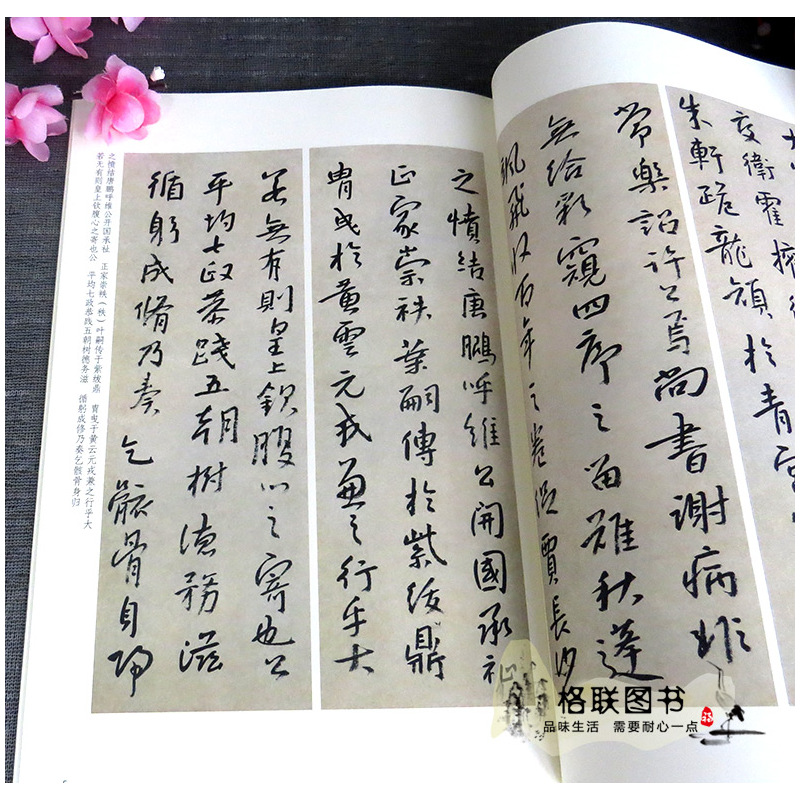 衛霍擁
朱軒跪龍額於青
常樂詔許公焉尚書謝病
無給彩窺四序之留難秋蓬
飄飛収百年之
賈長沙
之憤結唐鵬呼維公開國承社
正家崇袟葉嗣傳於紫紱鼎
冑曳於黃雲元戎兼之行乎大
若無有則皇上欽腹心之寄也公
平均七政恭踐五朝樹德務滋
循躬成脩乃奏乞骸骨自歸
之愤结唐鹏呼维公开国承社 正家崇袟（秩）叶嗣传于紫绂鼎 胄曳于黄云元戎兼之行乎大
若无有则皇上钦腹心之寄也公 平均七政恭践五朝树德务滋 循躬成修乃奏乞骸骨身归
格联图书
品味生活 需要耐心一点